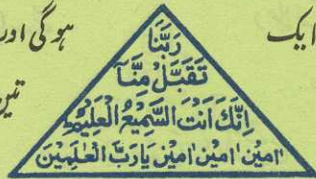 ایک
ہوگی اور
تین
رَبَّنَا
تَقَبَّلْ مِنَّا
اِنَّكَ اَنْتَ السَّمِيْعُ الْعَلِيْمُ
اٰمِيْن اٰمِيْن اٰمِيْن يَارَبَّ الْعٰلَمِيْنَ